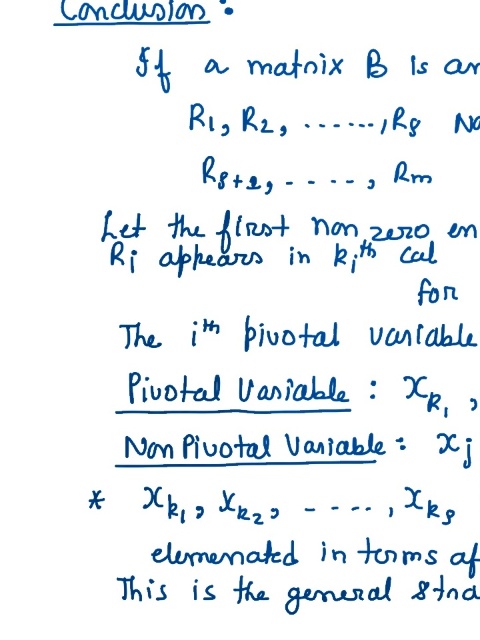 Conclusion :
If a matrix B is an
R1, R2, ......, Rs No
Rs+1, - - - -, Rm
Let the first non zero en
Ri appears in kith cal
for
The ith pivotal variable
Pivotal Variable : xk1,
Non Pivotal Variable : xj
* xk1, xk2, - - - -, xks
elemenated in terms of
This is the general stra